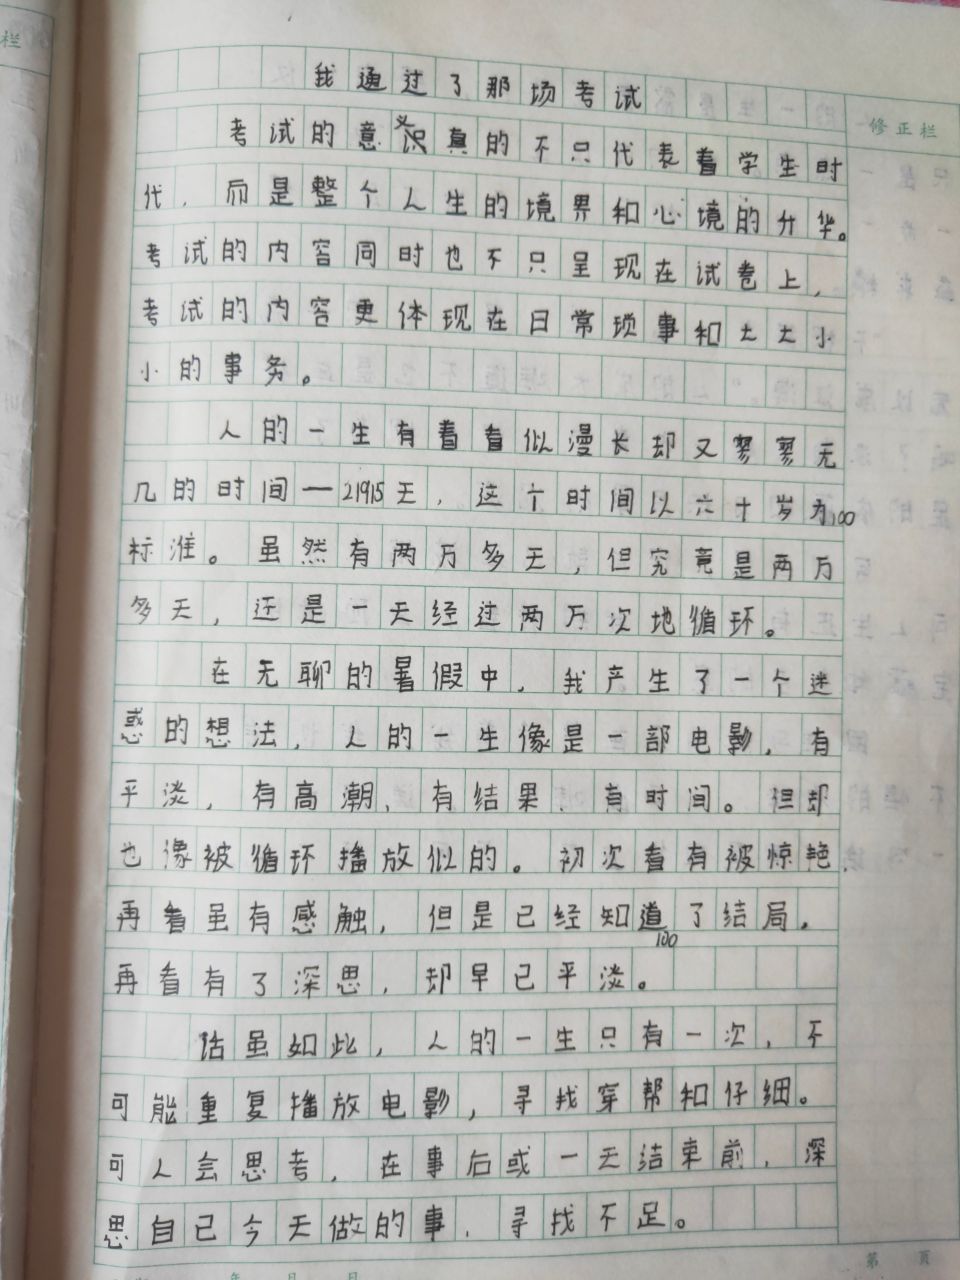 我通过了那场考试
考试的意义真的不只代表着学生时
代，而是整个人生的境界和心境的升华。
考试的内容同时也不只呈现在试卷上，
考试的内容更体现在日常琐事和大大小
小的事务。
人的一生有着看似漫长却又寥寥无
几的时间—21915天，这个时间以六十岁为
标准。虽然有两万多天，但究竟是两万
多天，还是一天经过两万次地循环。
在无聊的暑假中，我产生了一个迷
惑的想法，人的一生像是一部电影，有
平淡，有高潮，有结果，有时间。但却
也像被循环播放似的。初次看有被惊艳，
再看虽有感触，但是已经知道了结局，
再看有了深思，却早已平淡。
话虽如此，人的一生只有一次，不
可能重复播放电影，寻找穿帮和仔细。
可人会思考，在事后或一天结束前，深
思自己今天做的事，寻找不足。
100
100
修正栏
栏
第 页
年 月 日